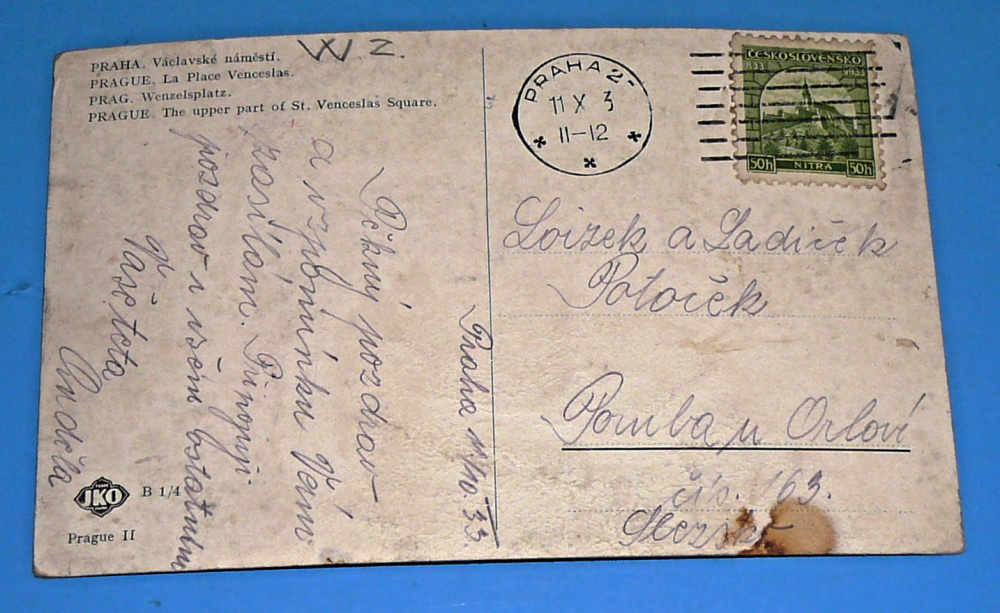 PRAHA. Václavské náměstí.
PRAGUE. La Place Venceslas.
PRAG. Wenzelsplatz.
PRAGUE. The upper part of St. Venceslas Square.
WZ.
PRAHA 2
11 X 3
11-12
ČESKOSLOVENSKO
833 1933
50h NITRA 50h
Praha 11/10. 33.
pozdrav
a vzpomínku Vám
zasílám. Připojuji
pozdrav i všem ostatním
Vaše teta
Loizek a Ladiček
Potoček
Poruba u Orlové
čís. 163.
JKO
B 1/4
Prague II